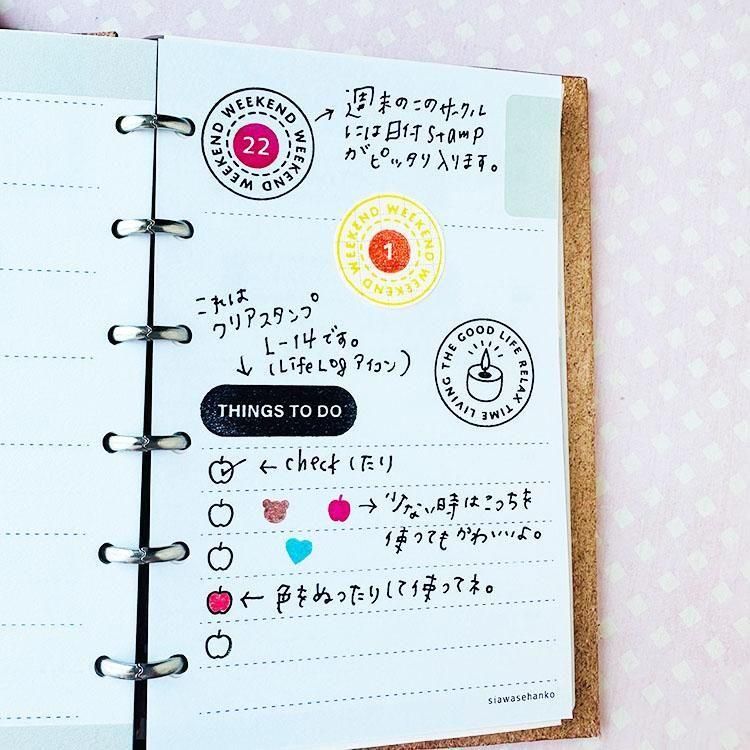 WEEKEND WEEKEND WEEKEND
22
→ 週末のこのサークル
には日付stamp
がピッタリ入ります。
WEEKEND WEEKEND WEEKEND
1
これは
クリアスタンプ
L-14です。
(LifeLogアイコン)
LIVING THE GOOD LIFE RELAX TIME
THINGS TO DO
← checkしたり
→ 少ない時はこっちを
使ってもかわいいよ。
← 色をぬったりして使ってネ。
siawasehanko